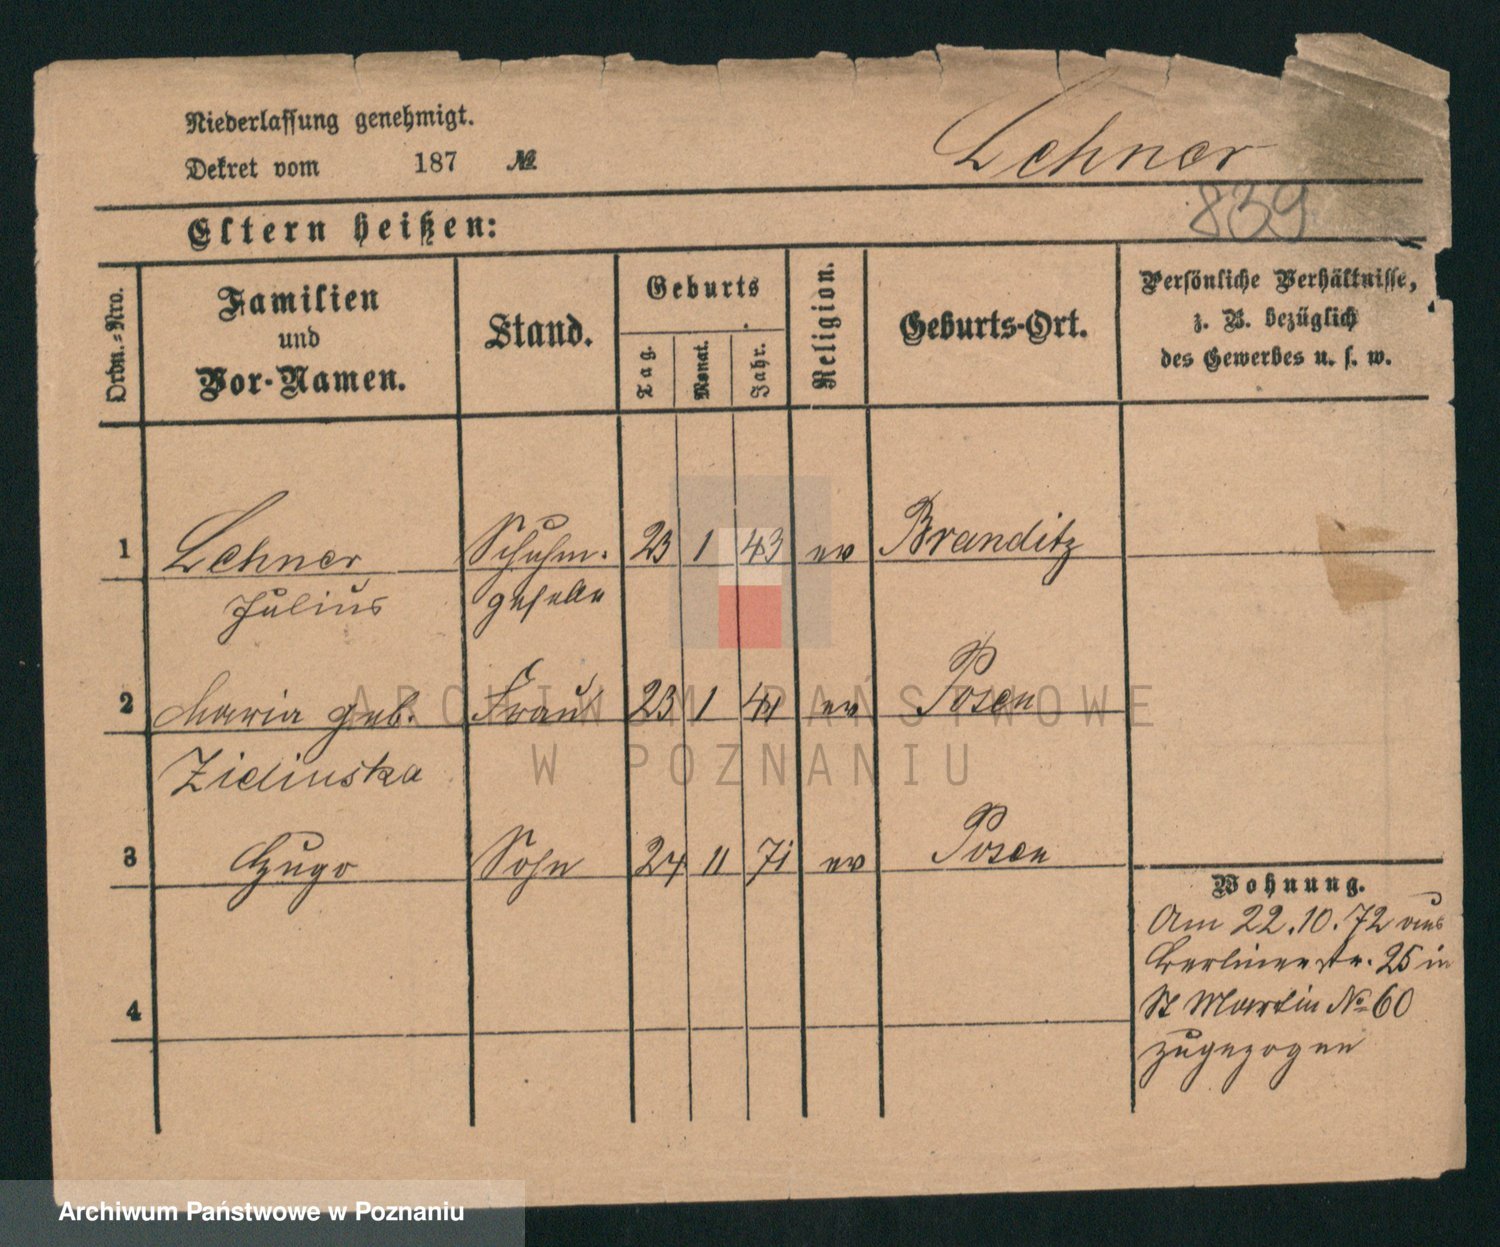 Niederlassung genehmigt.
Dekret vom 187 №
Lehner
839
Eltern heißen:
Ordn.-Nro.
Familien
und
Vor-Namen.
Stand.
Geburts
Tag.
Monat.
Jahr.
Religion.
Geburts-Ort.
Persönliche Verhältnisse,
z. B. bezüglich
des Gewerbes u. s. w.
1 Lehner Schuhm. 23 1 43 ev Branditz
Julius geselle
2 Maria geb. Frau 23 1 44 ev Posen
Zielinska
3 Hugo Sohn 24 11 71 ev Posen
4
Wohnung.
Am 22.10.72 aus
Berlinerstr. 25 in
St Martin № 60
zugezogen
ARCHIWUM PAŃSTWOWE
W POZNANIU
Archiwum Państwowe w Poznaniu